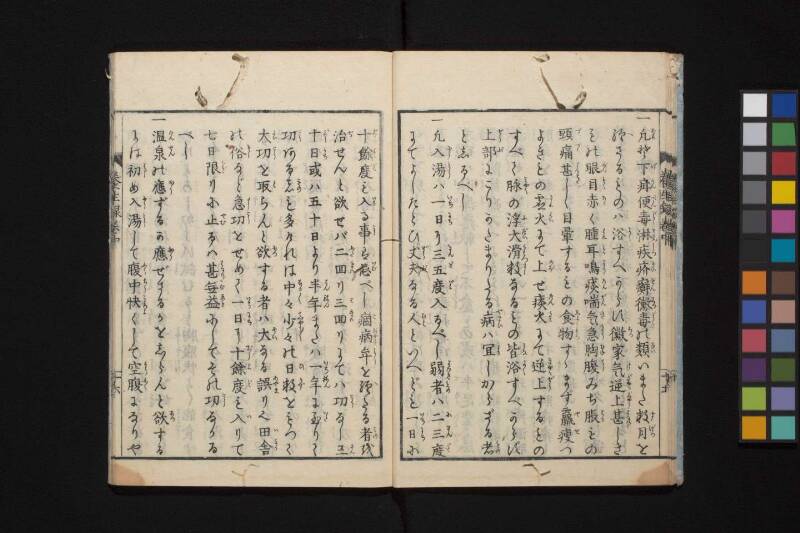 一凡そ下疳便毒淋疾疥癬黴毒の類いまだ数月を
経ざるものハ浴すべからず黴家気逆上甚しき
もの眼目赤く腫耳鳴痰喘気急胸腹みち脹もの
頭痛甚しく目暈するもの食物すゝまず羸痩つ
よきもの虚火にて上せ痰火にて逆上するもの
すべて脉の浮大滑数なるもの皆浴すべからず
上部にこりかたまりたる病ハ宜しからざる者
と志るべし
一凡入湯ハ一日に三五度入るべし弱者ハ二三度
にてよしたとひ丈夫なる人といへども一日に
十餘度も入る事を忌べし痼病年を経たる者我
治せんと欲せバ二回り三回りにてハ功なし三
十日或ハ五十日より半年または一年に至りて
功なるもの多けれは中々少々の日数をもつて
大功を取らんと欲する者ハ大なる誤りなり田舎
の俗など急功をせめて一日に十餘度も入りて
七日限りに止るハ甚無益にしてその功なかる
べし
一温泉の應ずるか應ぜざるかを志らんと欲する
にハ初め入湯して腹中快くして空腹になりや
養生録巻中